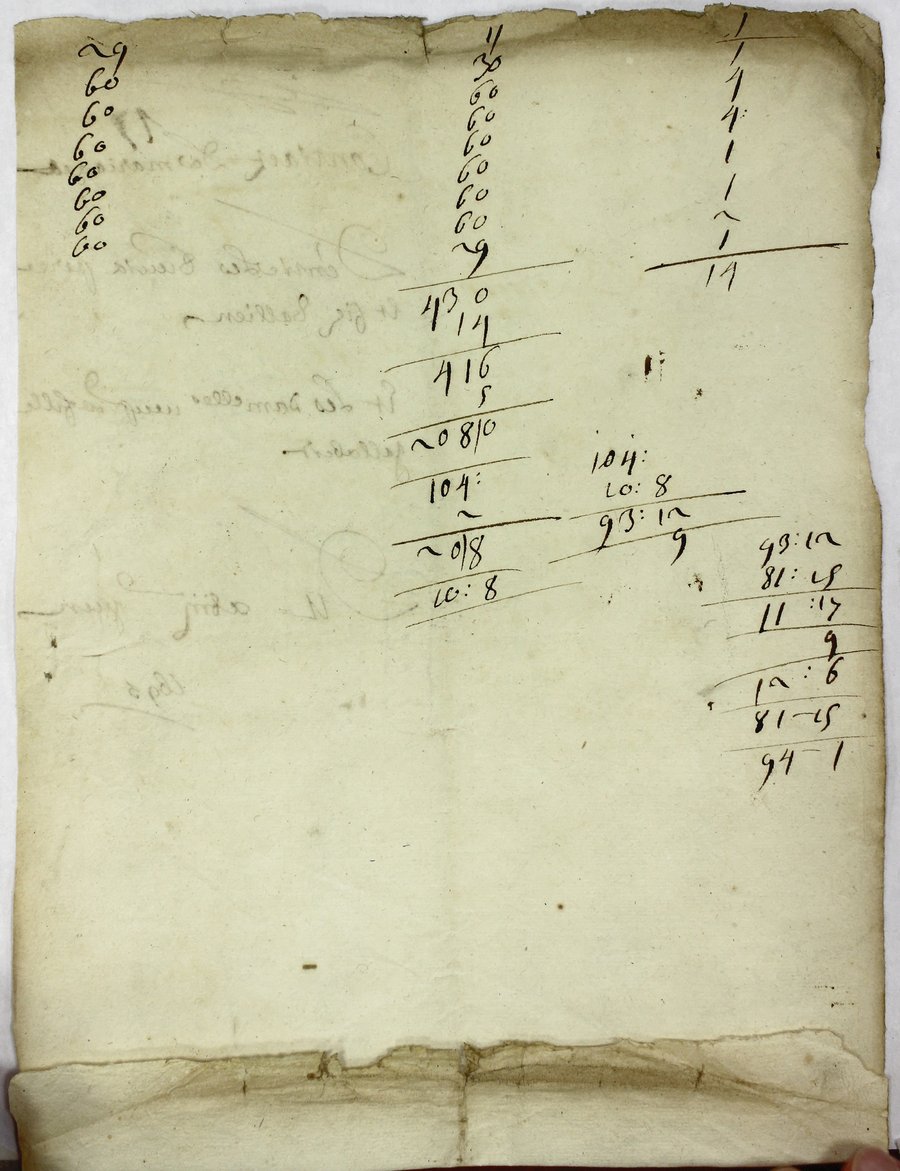 29
60
60
60
60
60
60
60
11
30
60
60
60
60
60
60
29
430
14
416
5
208|0
104:
2
20|8
10:8
1
1
4
4:
1
1
2
1
14
104:
10:8
93:12
9
93:12
81:15
11:17
9
12:6
81-15
94-1